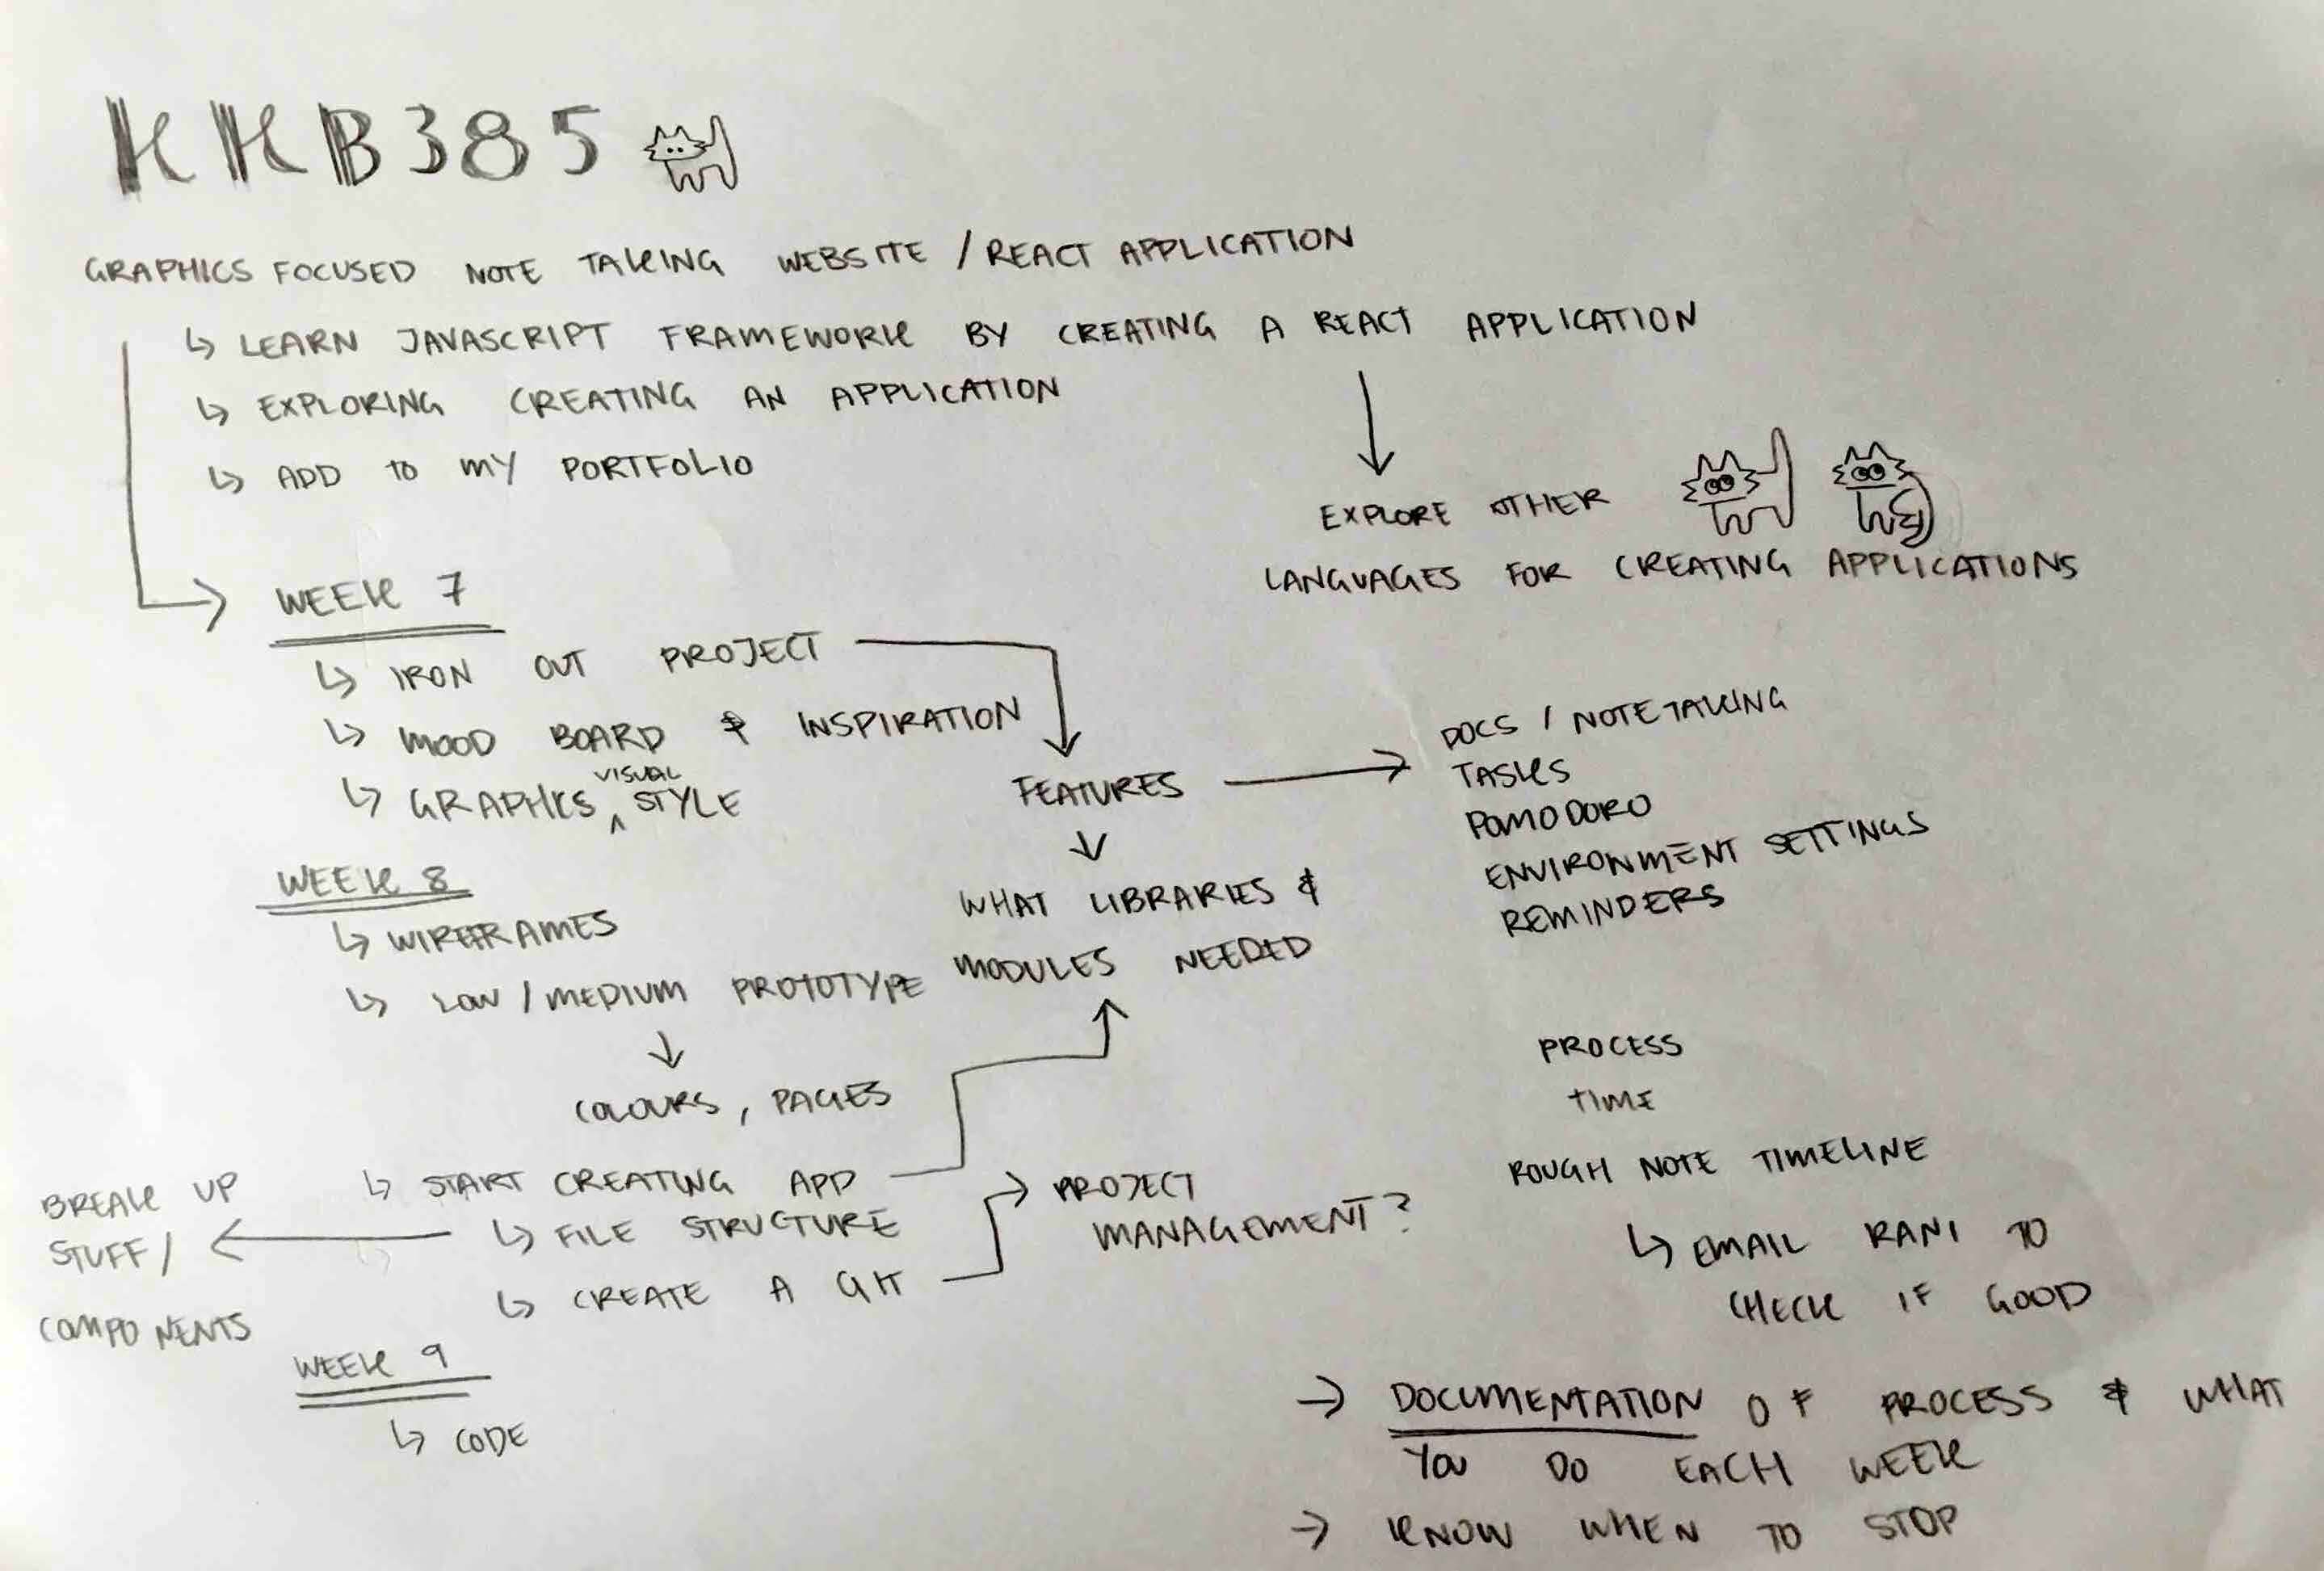 KKB385
GRAPHICS FOCUSED NOTE TAKING WEBSITE / REACT APPLICATION
↳ LEARN JAVASCRIPT FRAMEWORK BY CREATING A REACT APPLICATION
↳ EXPLORING CREATING AN APPLICATION
↳ ADD TO MY PORTFOLIO
EXPLORE OTHER
LANGUAGES FOR CREATING APPLICATIONS
WEEK 7
↳ IRON OUT PROJECT
↳ MOOD BOARD & INSPIRATION
↳ GRAPHICS VISUAL STYLE
FEATURES
DOCS / NOTETAKING
TASKS
POMODORO
ENVIRONMENT SETTINGS
REMINDERS
WHAT LIBRARIES &
MODULES NEEDED
WEEK 8
↳ WIREFRAMES
↳ LOW / MEDIUM PROTOTYPE
COLOURS, PAGES
↳ START CREATING APP
↳ FILE STRUCTURE
↳ CREATE A GIT
BREAK UP
STUFF /
COMPONENTS
PROJECT
MANAGEMENT?
WEEK 9
↳ CODE
PROCESS
TIME
ROUGH NOTE TIMELINE
↳ EMAIL RANI TO
CHECK IF GOOD
→ DOCUMENTATION OF PROCESS & WHAT
YOU DO EACH WEEK
→ KNOW WHEN TO STOP